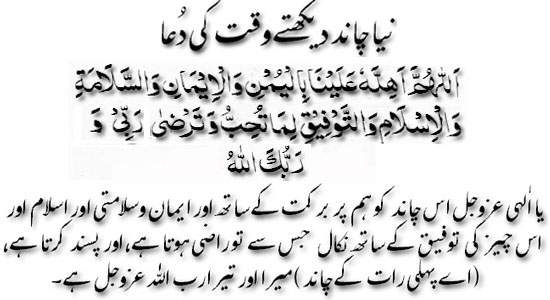 نیا چاند دیکھتے وقت کی دُعا
اَللّٰهُمَّ اَهِلَّهٗ عَلَيْنَا بِالْيُمْنِ وَالْاِيْمَانِ وَالسَّلَامَةِ
وَالْاِسْلَامِ وَالتَّوْفِيْقِ لِمَا تُحِبُّ وَتَرْضٰى رَبِّىْ وَ
رَبُّكَ اللهُ
یا الٰہی عزوجل اس چاند کو ہم پر برکت کے ساتھ اور ایمان و سلامتی اور اسلام اور
اس چیز کی توفیق کے ساتھ نکال جس سے تو راضی ہوتا ہے، اور پسند کرتا ہے،
(اے پہلی رات کے چاند) میرا اور تیرا رب اللہ عزوجل ہے۔